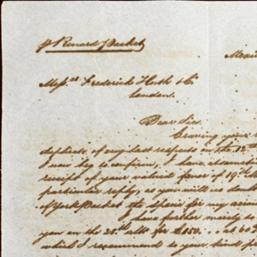 p Renard Packet
Mess.rs Frederick Huth & Co
London.
Dear Sirs.
Craving your
duplicate of my last respects on the
I now beg to confirm, I have
receipt of your valued favor of 19th
particular reply, as you will no doubt
of York Packet the
I have further merely to
you on the 28th ulto for £150
which I recommend to your kind